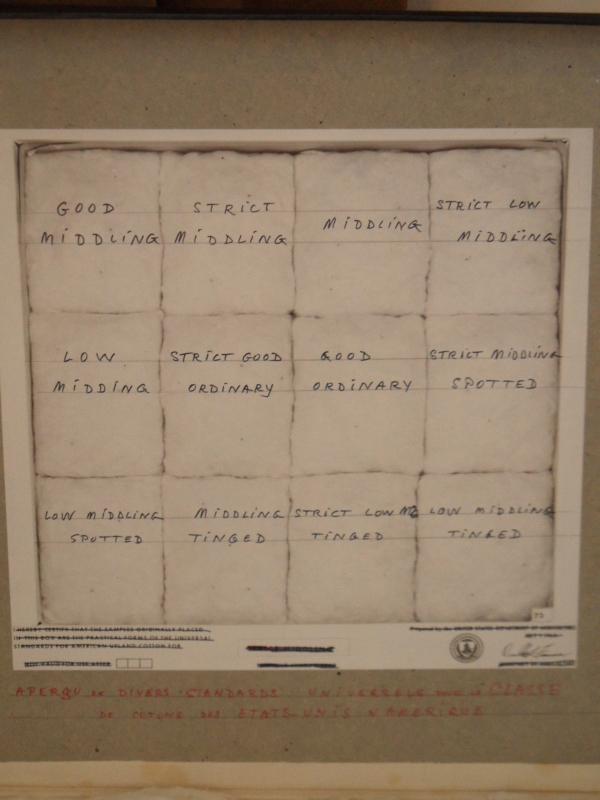 GOOD
MIDDLING
STRICT
MIDDLING
MIDDLING
STRICT LOW
MIDDLING
LOW
MIDDING
STRICT GOOD
ORDINARY
GOOD
ORDINARY
STRICT MIDDLING
SPOTTED
LOW MIDDLING
SPOTTED
MIDDLING
TINGED
STRICT LOW
TINGED
LOW MIDDLING
TINGED
I HEREBY CERTIFY THAT THE SAMPLES ORIGINALLY PLACED
IN THIS BOX ARE THE PRACTICAL FORMS OF THE UNIVERSAL
STANDARDS FOR AMERICAN UPLAND COTTON FOR
Prepared by the UNITED STATES DEPARTMENT OF AGRICULTURE
APERÇU DE DIVERS STANDARDS UNIVERSELS CLASSE
DE COTONS DES ETATS-UNIS D'AMERIQUE